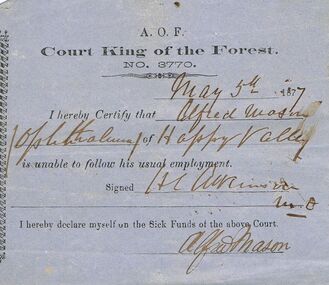 A. O. F.
Court King of the Forest.
NO. 3770.
May 5th 1877
I hereby Certify that Alfred Mason
(Ophthalmia) of Happy Valley
is unable to follow his usual employment.
Signed H C Atkinson
M.D
I hereby declare myself on the Sick Funds of the above Court.
Alfred Mason